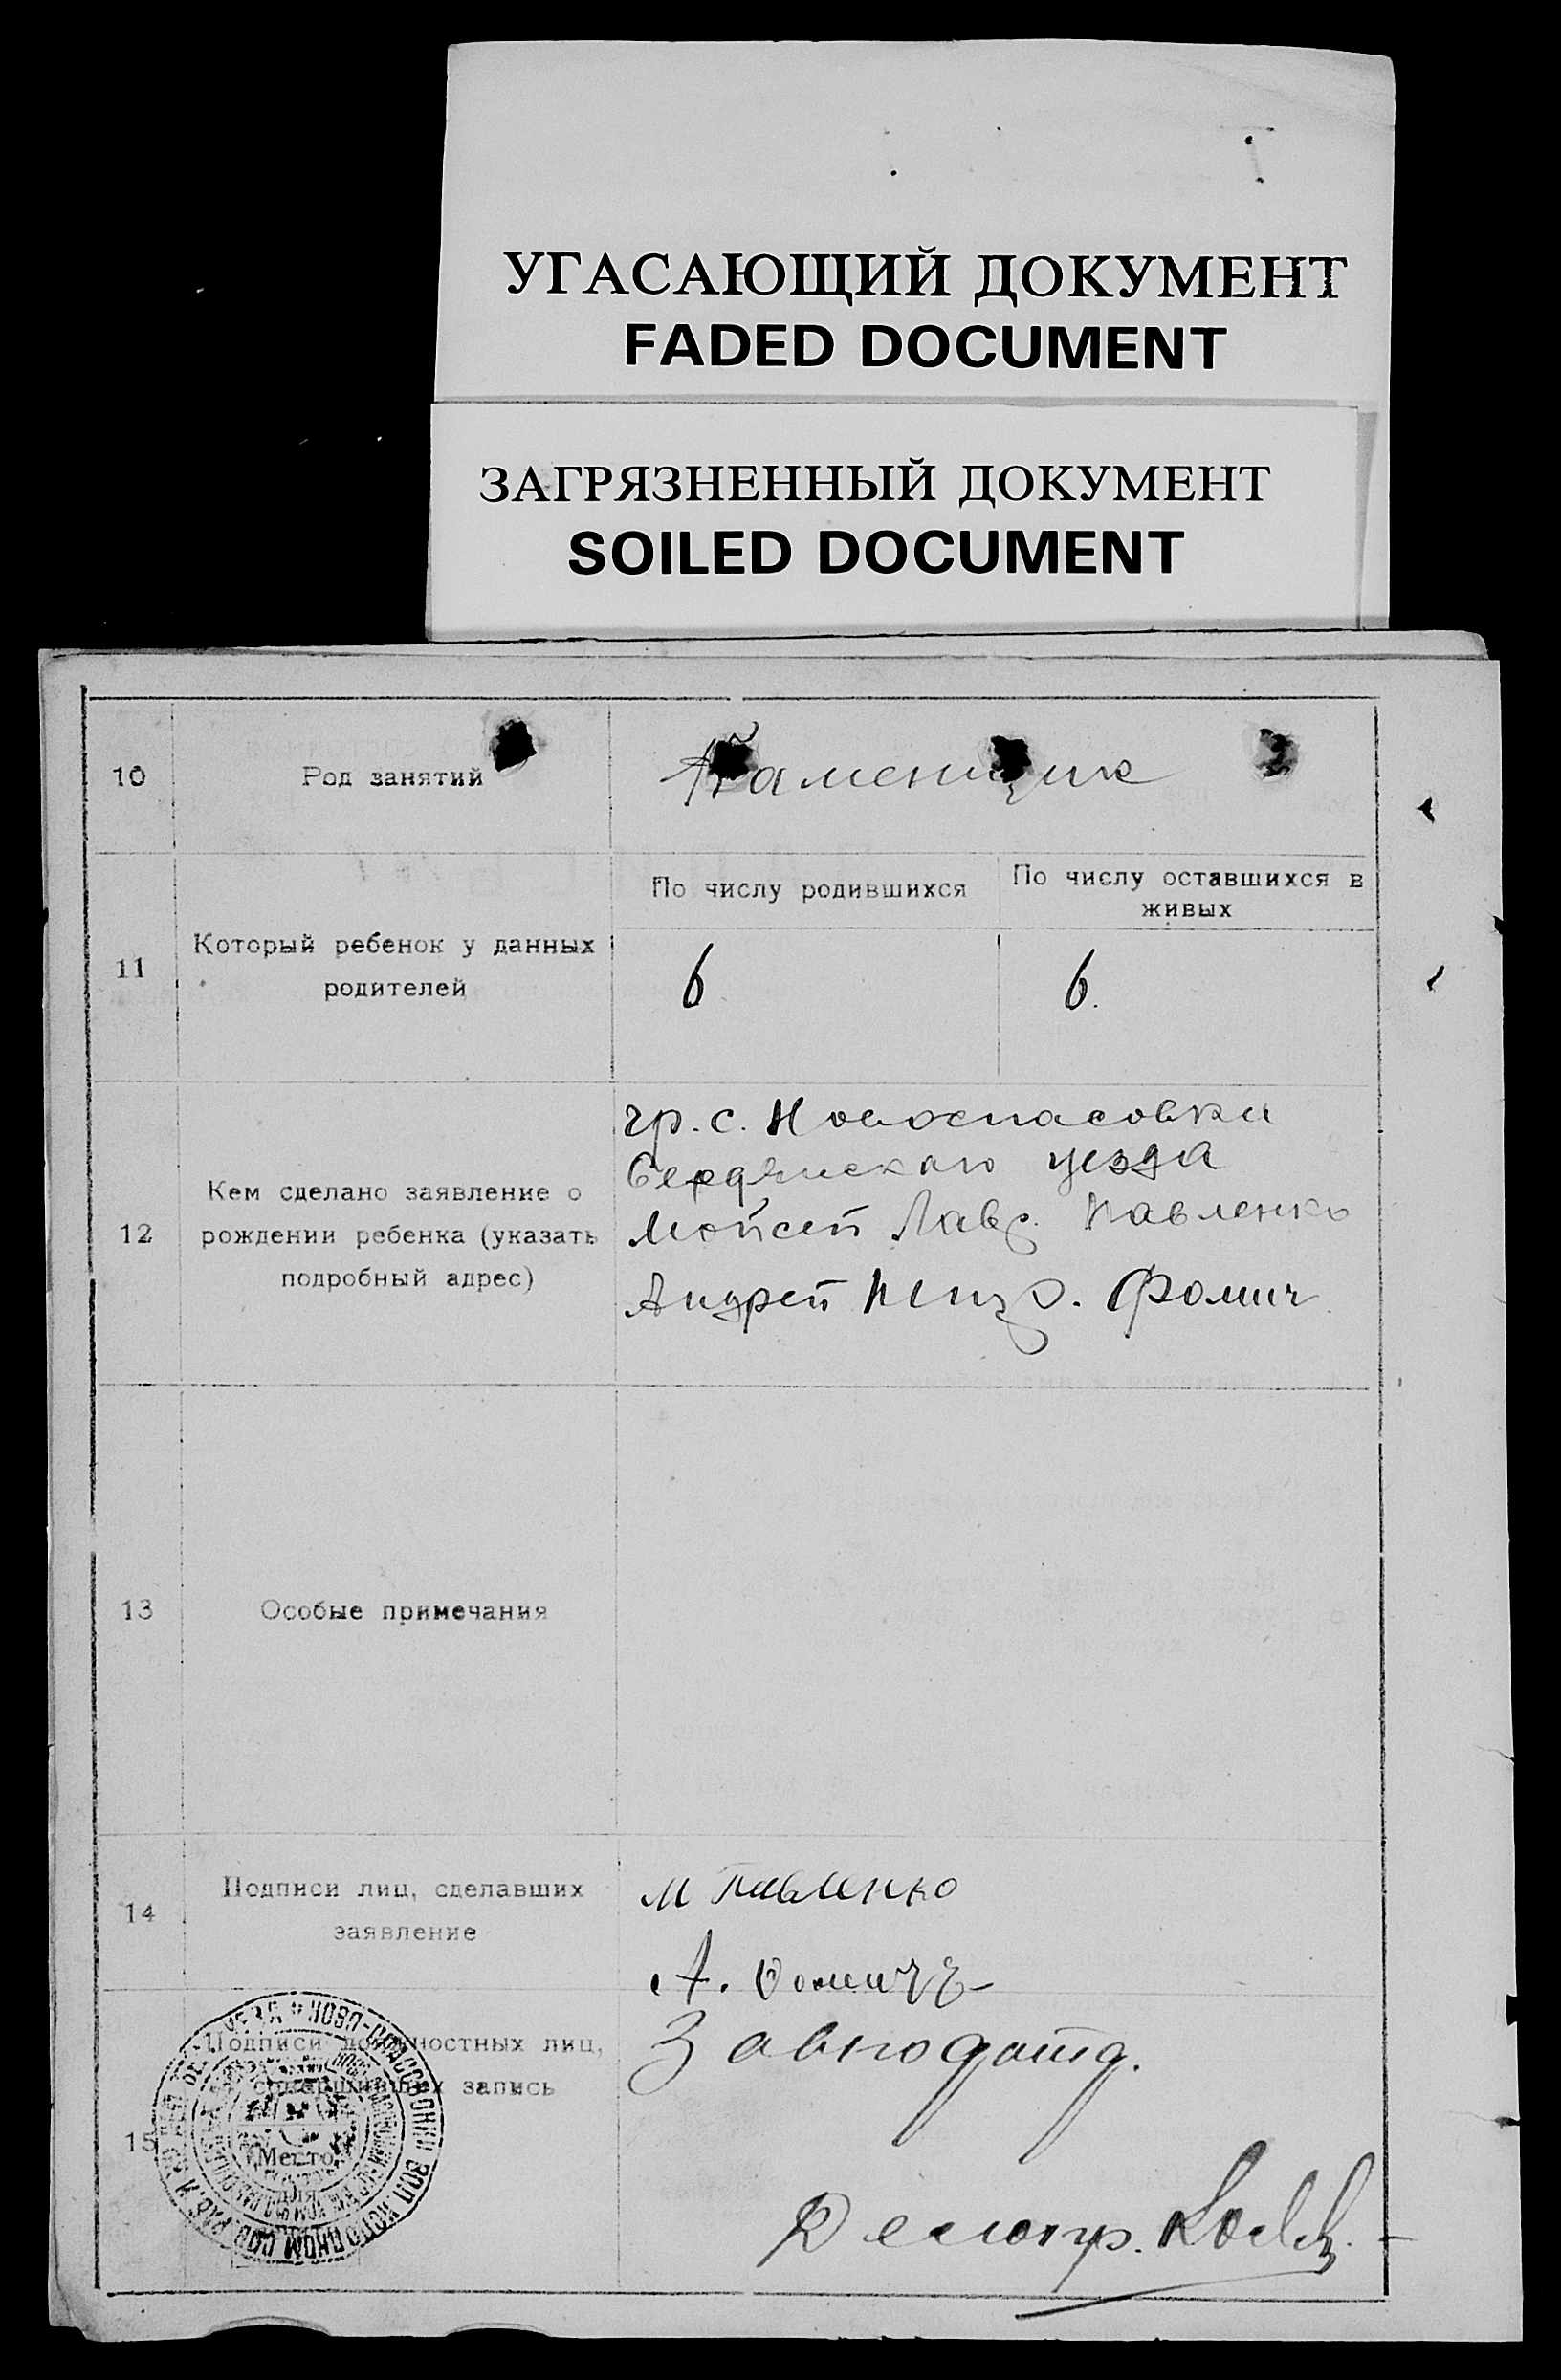 УГАСАЮЩИЙ ДОКУМЕНТ
FADED DOCUMENT
ЗАГРЯЗНЕННЫЙ ДОКУМЕНТ
SOILED DOCUMENT
10
Род занятий
Каменщик
11
Который ребенок у данных
родителей
По числу родившихся
6
По числу оставшихся в
живых
6.
12
Кем сделано заявление о
рождении ребенка (указать
подробный адрес)
гр. с. Новоспасовки
Бердянскаго уезда
Мойсей Лавр. Павленко
Андрей Фомич
13
Особые примечания
14
Подписи лиц, сделавших
заявление
М Павленко
А. Фомичъ
15
Подписи должностных лиц,
совершивших запись
Место
для
Завподотд.
Делопр.